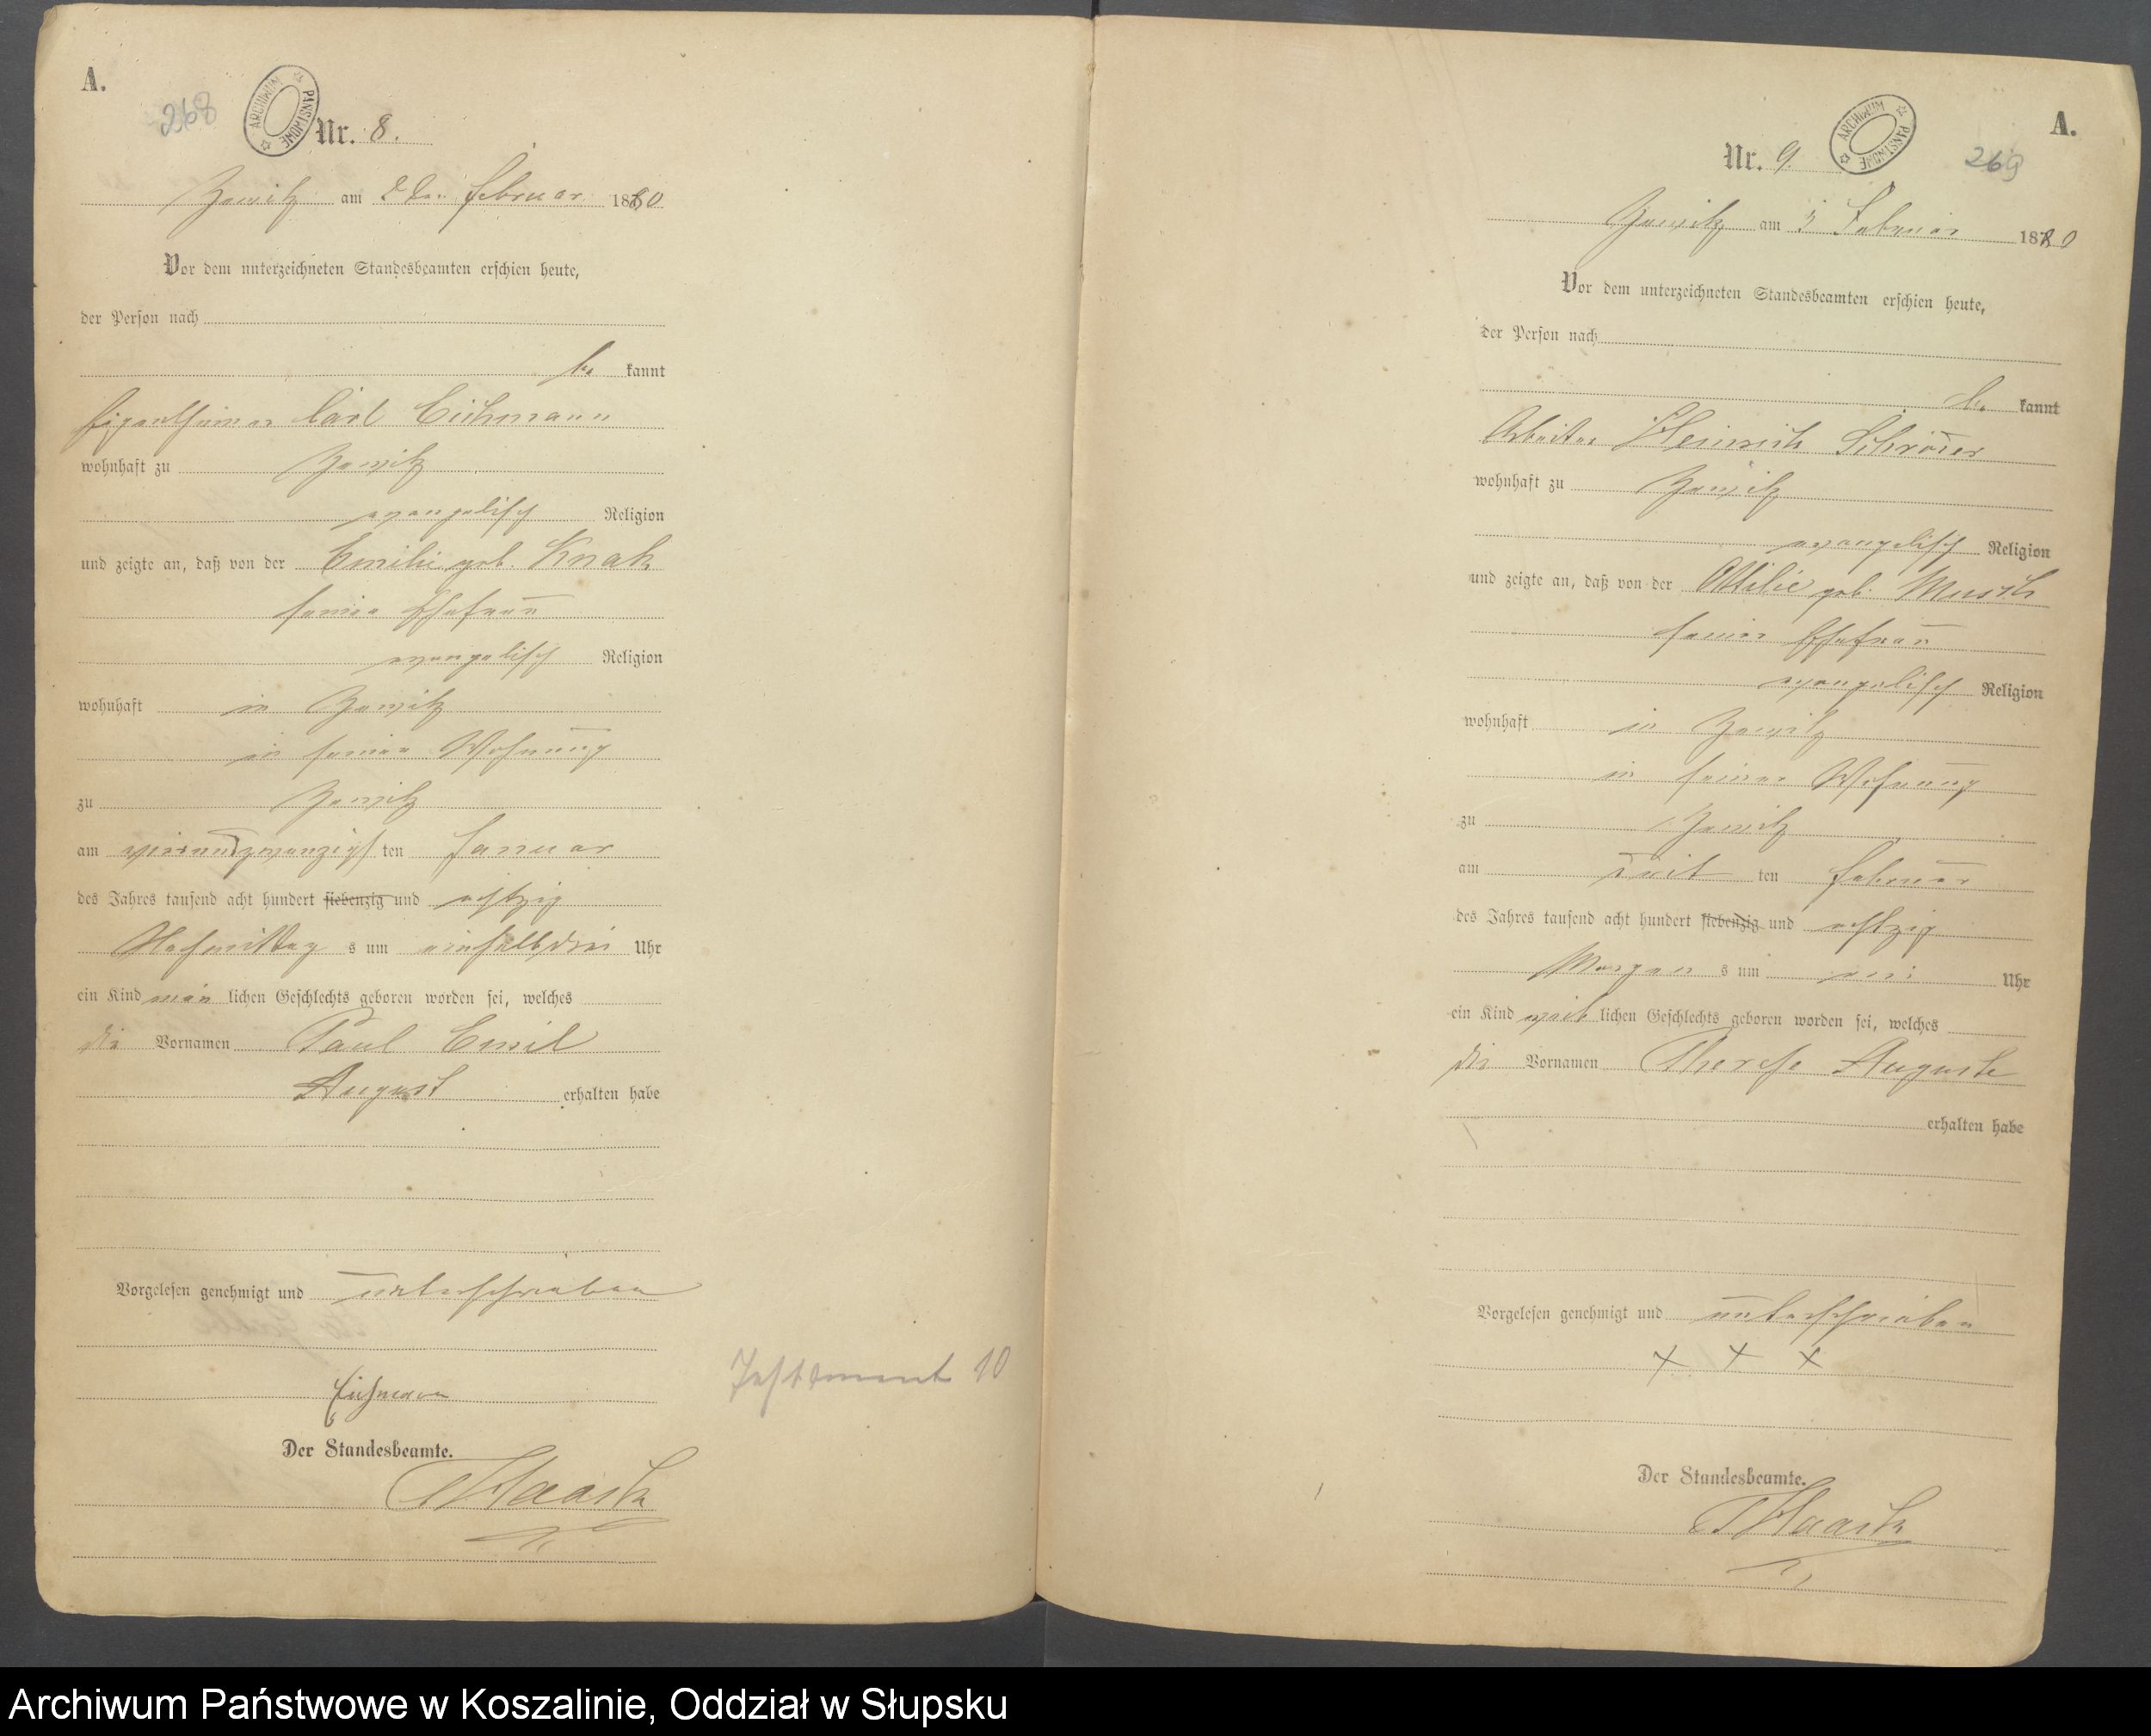 A.
268
ARCHIWUM PAŃSTWOWE
Nr. 8.
am Februar 1880
Vor dem unterzeichneten Standesbeamten erschien heute,
der Person nach
be kannt
Eigenthümer Carl Eichmann
wohnhaft zu
evangelisch Religion
und zeigte an, daß von der Emilie geb. Knak
seiner Ehefrau
evangelisch Religion
wohnhaft in
in seiner Wohnung
zu
am vierundzwanzigs ten Januar
des Jahres tausend acht hundert siebenzig und achtzig
Nachmittag s um einhalbdrei Uhr
ein Kind män lichen Geschlechts geboren worden sei, welches
die Vornamen Paul Emil
August erhalten habe
Vorgelesen genehmigt und unterschrieben
Eichmann
Der Standesbeamte.
Testament 10
A.
269
ARCHIWUM PAŃSTWOWE
Nr. 9.
am Februar 1880
Vor dem unterzeichneten Standesbeamten erschien heute,
der Person nach
be kannt
Arbeiter Heinrich Schröder
wohnhaft zu
evangelisch Religion
und zeigte an, daß von der Ottilie geb.
seiner Ehefrau
evangelisch Religion
wohnhaft in
in seiner Wohnung
zu
am ten Februar
des Jahres tausend acht hundert siebenzig und achtzig
Morgen s um Uhr
ein Kind weib lichen Geschlechts geboren worden sei, welches
die Vornamen Therese Auguste
erhalten habe
Vorgelesen genehmigt und unterschrieben
X X X
Der Standesbeamte.
Archiwum Państwowe w Koszalinie, Oddział w Słupsku